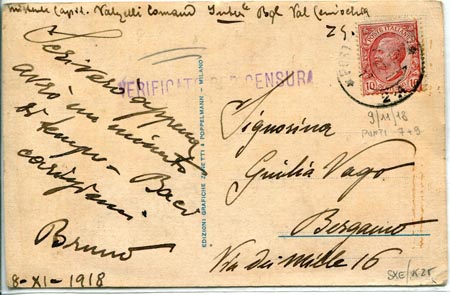 Mittente Capit. Valzelli Comando Intera Bgl. Val Camonica
Scriverò appena
avrò un minuto
di tempo - Baci
carissimi
Bruno
8-XI-1918
VERIFICATO PER CENSURA
EDIZIONI GRAFICHE ZANETTI & POPPELMANN - MILANO
POSTE ITALIANE
10
Signorina
Giulia Vago
Bergamo
Via dei Mille 16
9/11/18
PUNTI 7+9